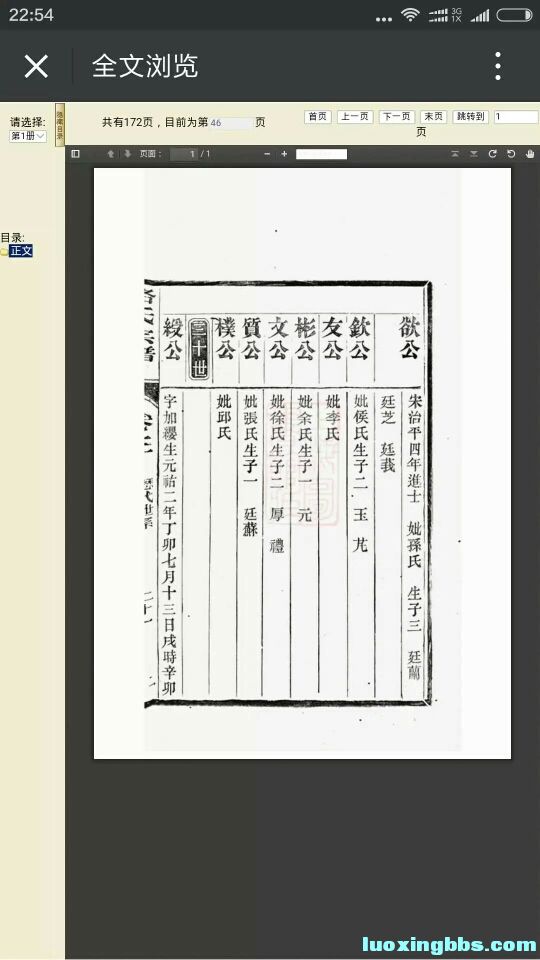 22:54
3G
1X
全文浏览
请选择:
第1册
共有172页，目前为第 46 页
首页 上一页 下一页 末页 跳转到 1
页
页面： 1 / 1
目录:
正文
欲公 宋治平四年進士 妣孫氏 生子三 廷蘭
廷芝 廷莪
欽公 妣侯氏生子二 玉 芃
友公 妣李氏
彬公 妣余氏生子一 元
文公 妣徐氏生子二 厚 禮
質公 妣張氏生子一 廷蘇
樸公 妣邱氏
三十世
綬公 字加纓生元祐二年丁卯七月十三日戌時辛卯
luoxingbbs.com